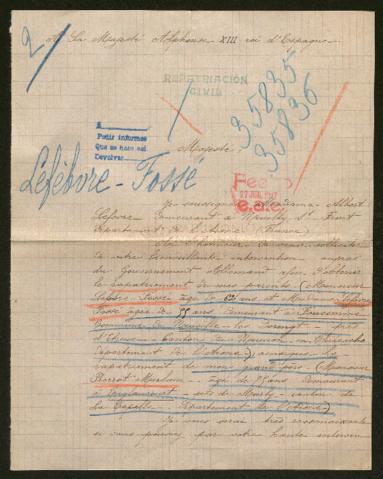 2
A Sa Majesté Alphonse XIII roi d'Espagne
REPATRIACIÓN
CIVIL
35835
35836
A
Pedir informes
Que se haga así
Devolver
Majesté
Lefèbvre - Fossé
Fecho
27 JUL. 1917
Je soussignée Madame Albert
Lefèvre demeurant à Neuilly St Front
département de l'Aisne (France)
a l'honneur de venir solliciter
de votre bienveillante intervention auprès
du Gouvernement Allemand afin d'obtenir
le rapatriement de mes parents (Monsieur
Lefèbvre Fossé âgé de 62 ans et Madame Lefèbvre
Fossé âgée de 55 ans, demeurant à
commune de près
d'Etreux - Canton de en Thiérache
département de l'Aisne) ainsi que le
rapatriement de mon grand père (Monsieur
âgé de 85 ans demeurant
à près de canton de
La Capelle - département de l'Aisne)
Je vous serai très reconnaissante
si vous pouviez par votre haute interven